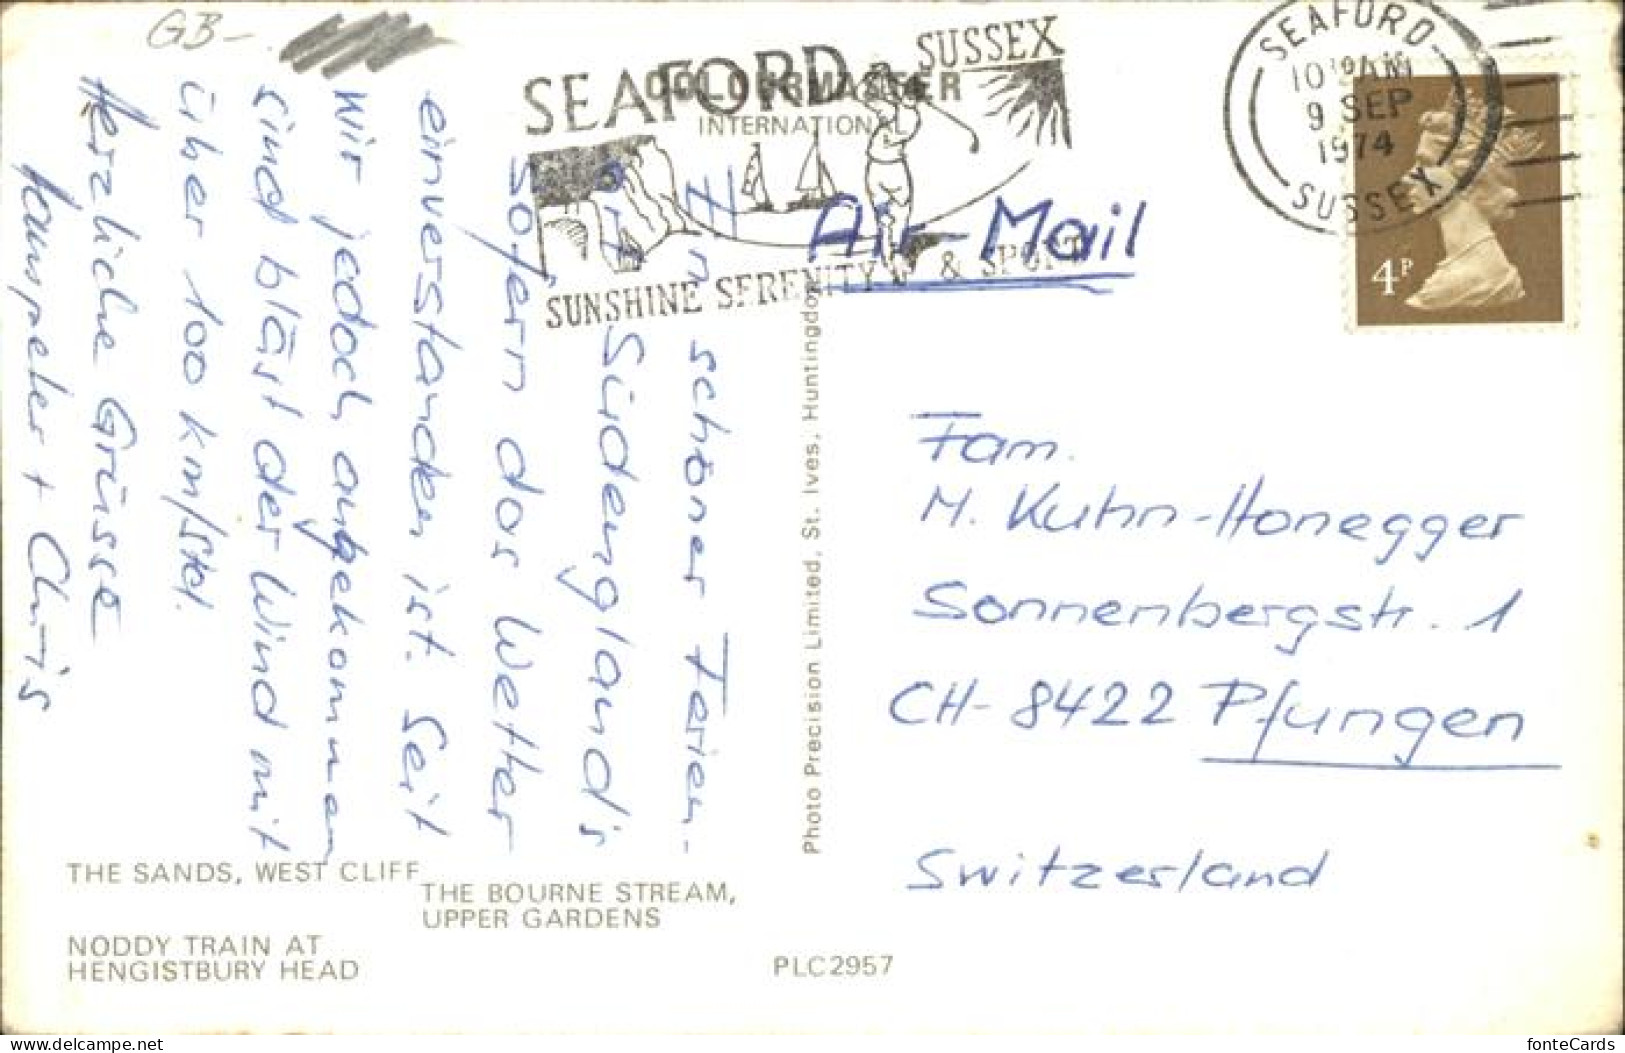 GB-
SEAFORD SUSSEX
COLOURMASTER
INTERNATIONAL
SUNSHINE SERENITY & SPORT
SEAFORD
10 AM
9 SEP
1974
SUSSEX
4P
Air-Mail
Ein schöner Ferien-
ort Südengland's
sofern das Wetter
einverstanden ist. Seit
wir jedoch angekommen
sind bläst der Wind mit
über 100 km/Std.
Herzliche Grüsse
Hanspeter + Chris
Photo Precision Limited, St. Ives, Huntingdon
Fam.
M. Kuhn-Honegger
Sonnenbergstr. 1
CH-8422 Pfungen
Switzerland
THE SANDS, WEST CLIFF
THE BOURNE STREAM,
UPPER GARDENS
NODDY TRAIN AT
HENGISTBURY HEAD
PLC2957
https://www.delcampe.net
fonteCards